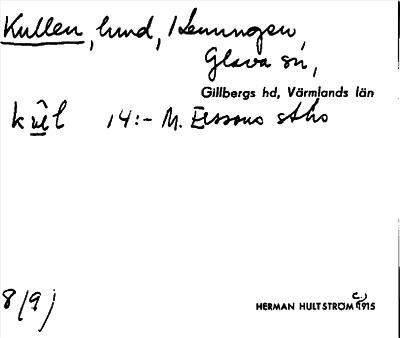 Kullen, lund, Henningsen,
Glava sn,
Gillbergs hd, Värmlands län
kûl 14:- M. Elssons stho
8/9
HERMAN HULTSTRÖM c:) 1915